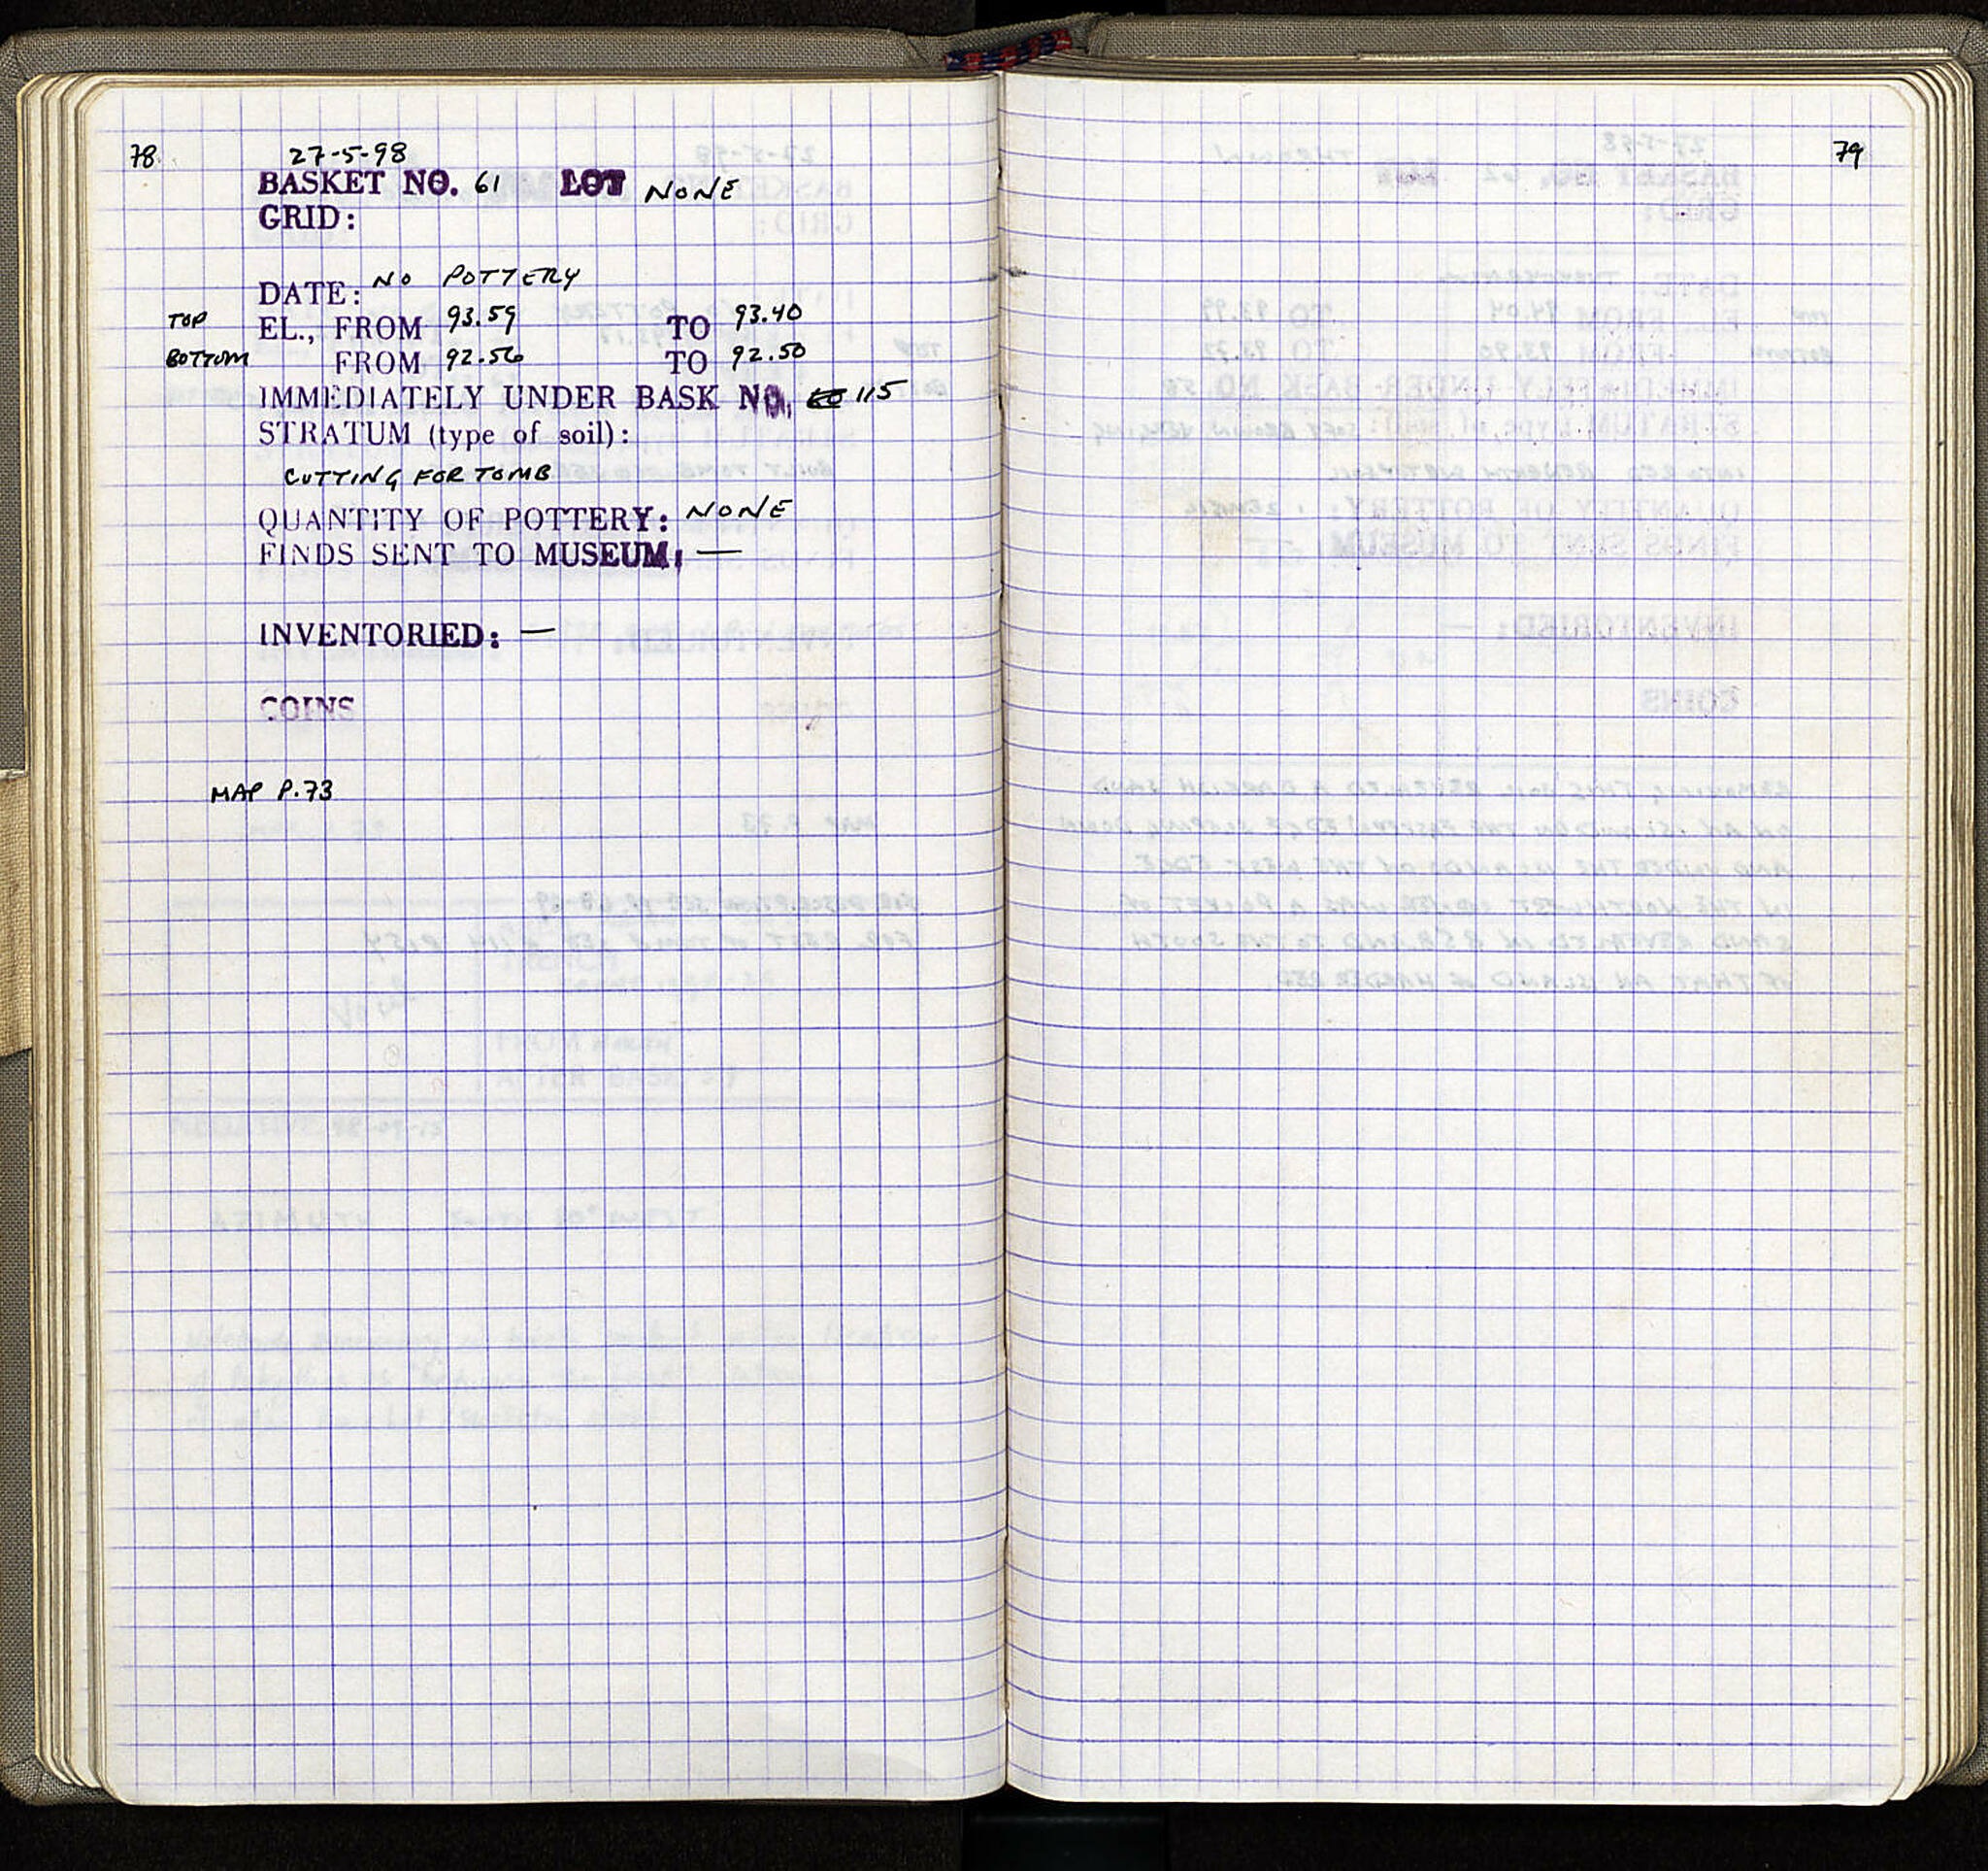 78
27-5-98
BASKET NO. 61 LOT NONE
GRID:
DATE: NO POTTERY
TOP EL., FROM 93.59 TO 93.40
BOTTOM FROM 92.56 TO 92.50
IMMEDIATELY UNDER BASK NO. 115
STRATUM (type of soil):
CUTTING FOR TOMB
QUANTITY OF POTTERY: NONE
FINDS SENT TO MUSEUM: —
INVENTORIED: —
COINS
MAP P.73
79